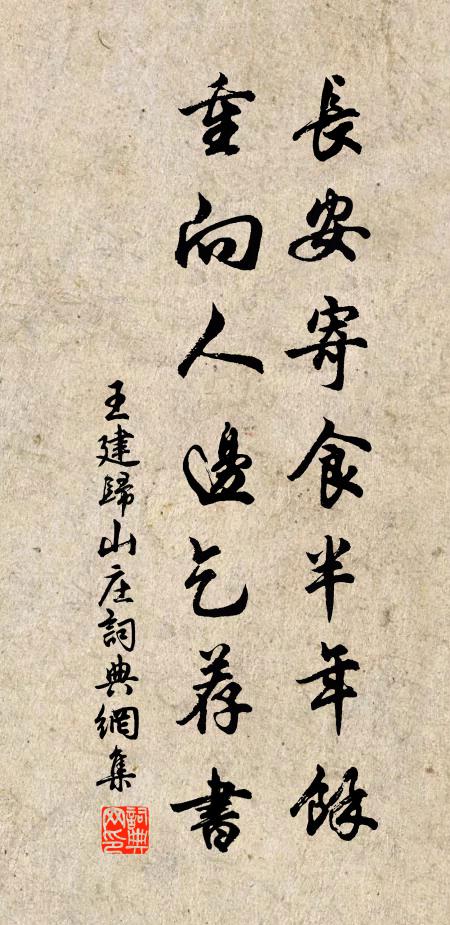 長安寄食半年餘
重向人邊乞荐書
王建歸山庄詞典網集
詞典
网印